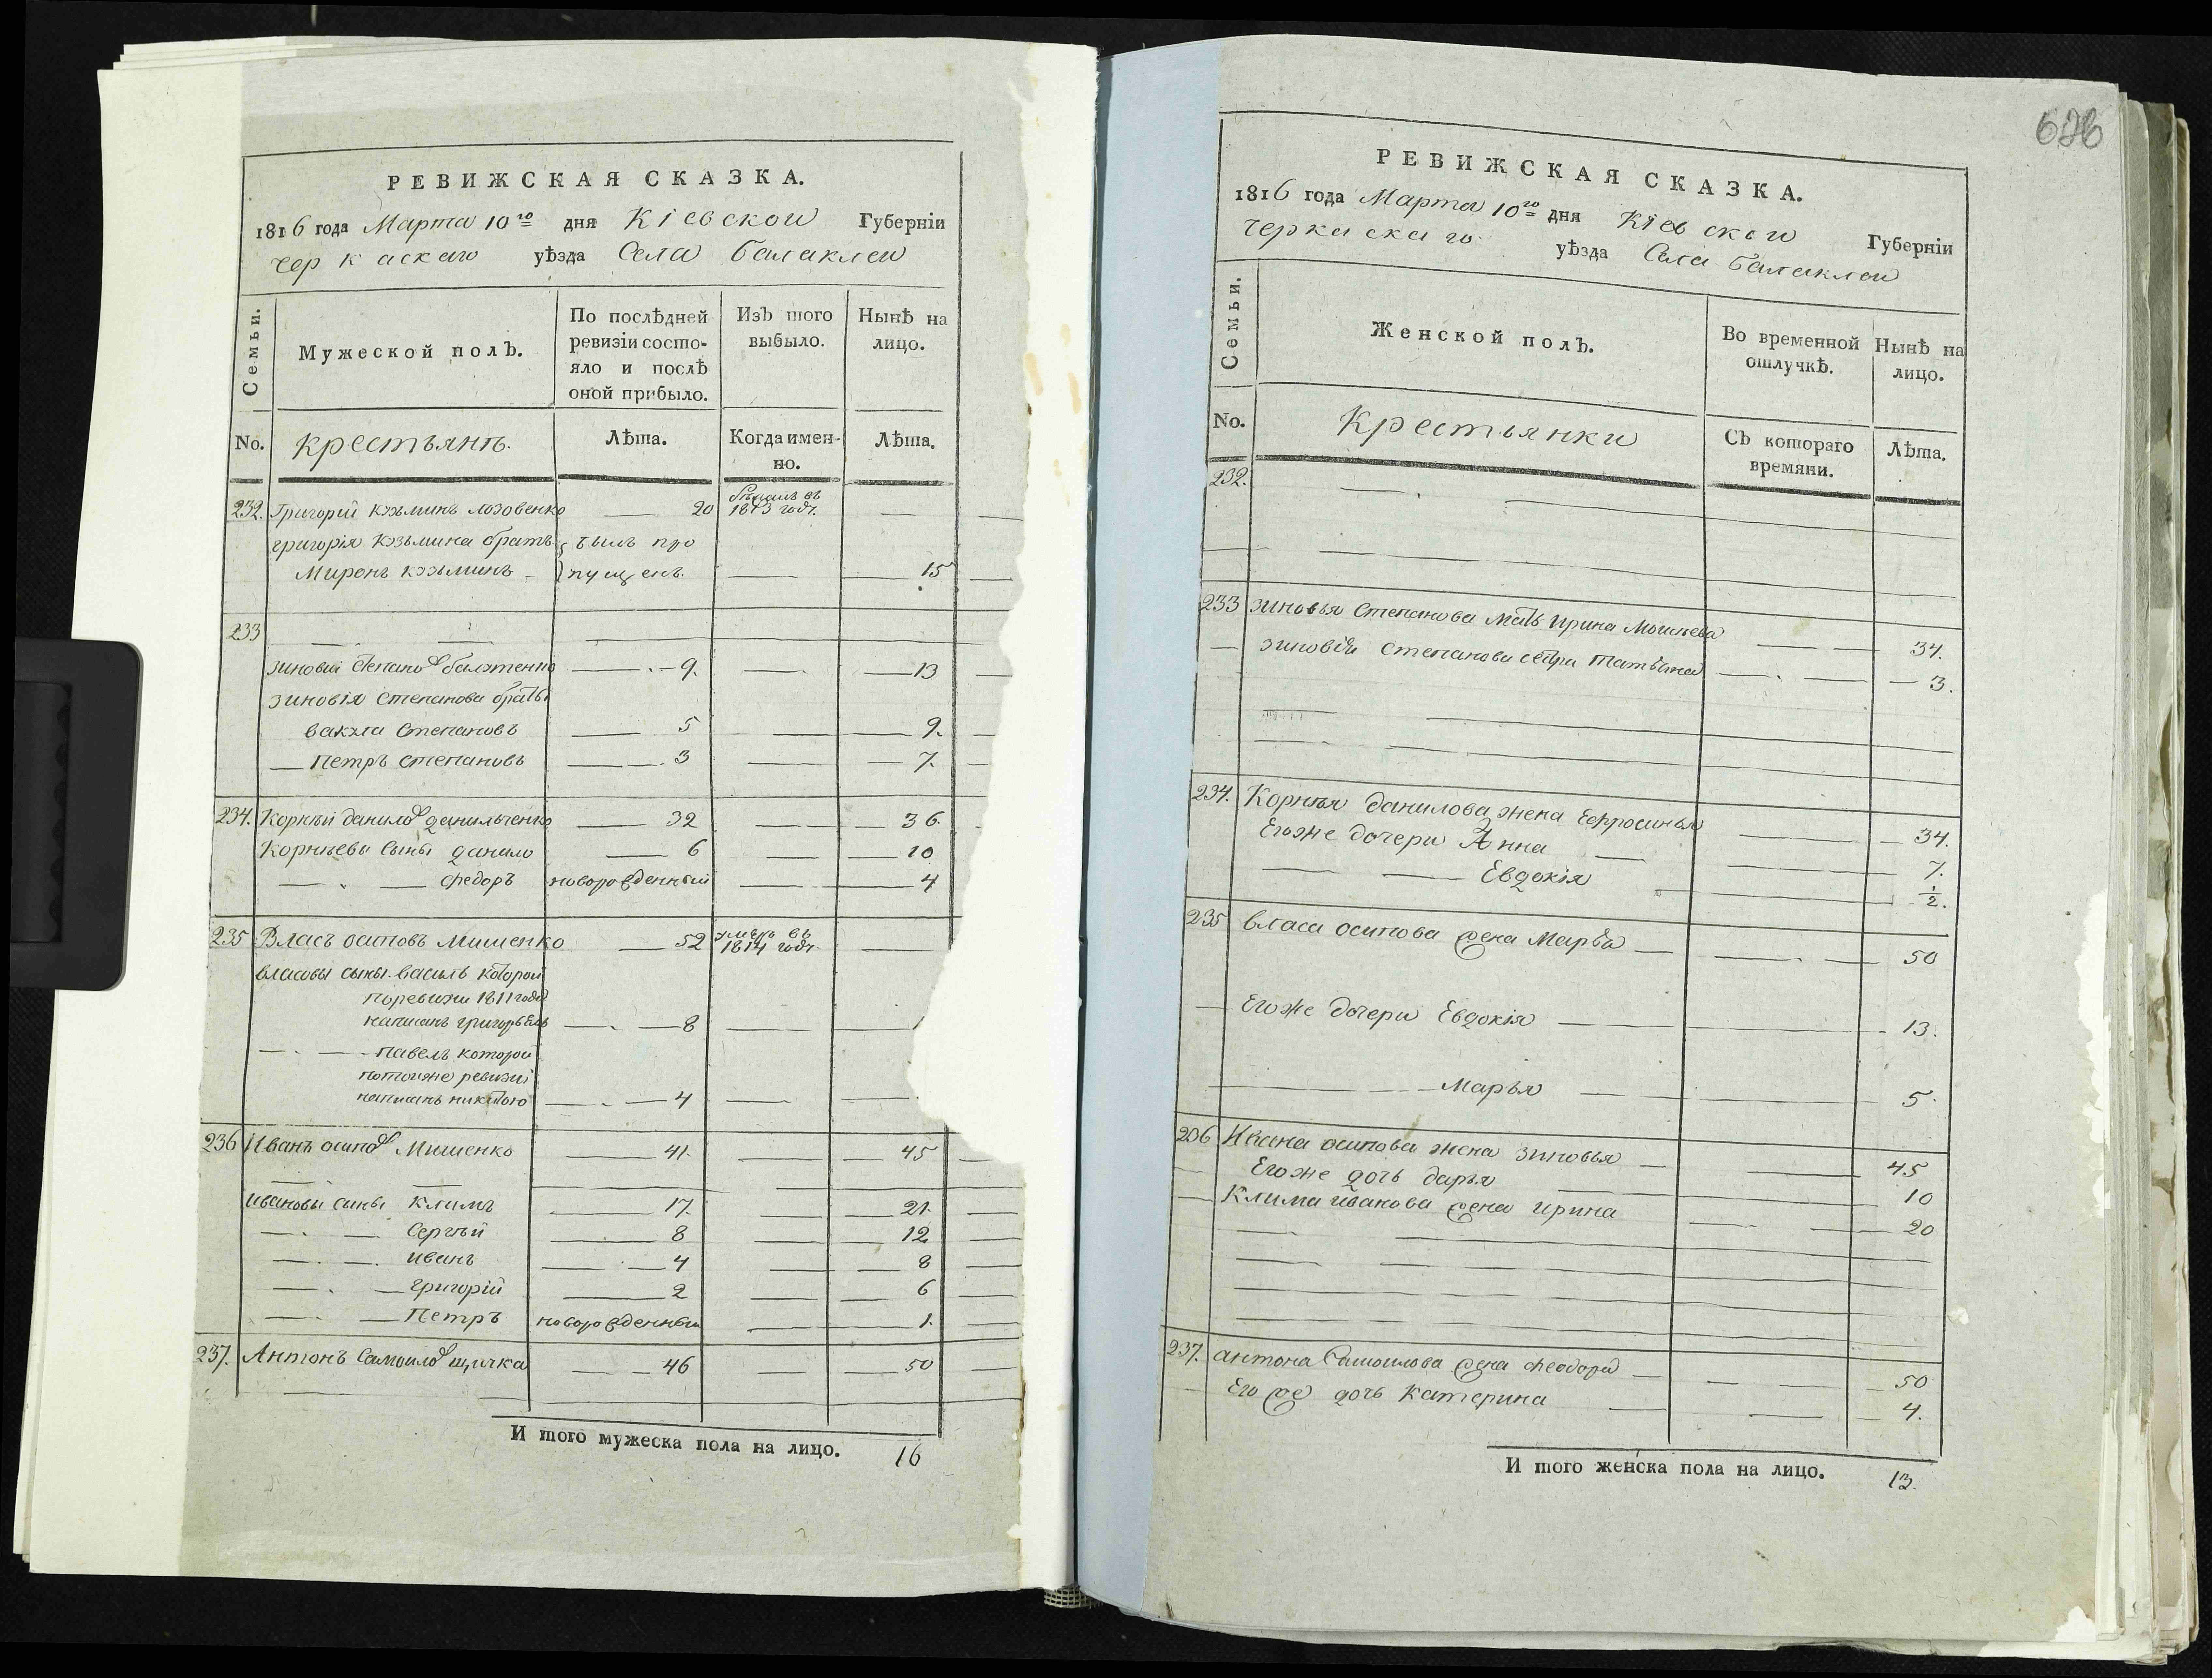 РЕВИЖСКАЯ СКАЗКА.
1816 года Марта 10го дня Кіевской Губерніи
Черкаскаго уѣзда Села Балаклеи
Семьи.
Мужеской полъ.
По послѣдней ревизіи состояло и послѣ оной прибыло.
Изъ того выбыло.
Нынѣ на лицо.
No. крестьянъ. Лѣта. Когда именно. Лѣта.
232. Григорій козьминъ лозовенко 20 въ 1813 годѣ.
григорія козьмина братъ былъ про
Миронъ козьминъ пущенъ. 15
233
зиновій степановъ 9. 13
зиновія степанова братья
вакула степановъ 5 9.
Петръ степановъ 3 7.
234. Корнѣй даниловъ данильченко 32 36.
Корнѣевы сыны данило 6 10
федоръ новорожденный 4
235 Власъ осиповъ мишенко 52 умеръ въ 1814 годѣ
власовы сыны василь которой
по ревизіи 1811 года
написанъ григорьемъ 8
павелъ которой
по той же ревизіи
написанъ никитою 4
236 Иванъ осиповъ Мишенко 41. 45
ивановы сыны климъ 17. 21.
сергѣй 8 12
иванъ 4 8
григорій 2 6
Петръ новорожденный 1.
237. Антонъ Самойловъ щичка 46 50
И того мужеска пола на лицо. 16
626
РЕВИЖСКАЯ СКАЗКА.
1816 года Марта 10го дня Кіевской Губерніи
Черкаскаго уѣзда Села Балаклеи
Семьи.
Женской полъ.
Во временной отлучкѣ.
Нынѣ на лицо.
No. Крестьянки Съ котораго времяни. Лѣта.
232.
233 зиновья степанова мать ирина 34.
зиновія степанова сестра татьяна 3.
234. Корнѣя данилова жена Ефросинья 34.
Его же дочери Анна 7.
Евдокія 1/2.
235 власа осипова жена марья 50
Его же дочери Евдокія 13.
марья 5.
236 Ивана осипова жена зиновья 45
Его же дочь дарья 10
Клима иванова жена ирина 20
237. антона Самойлова жена феодора 50
Его же дочь Катерина 4.
И того женска пола на лицо. 13.